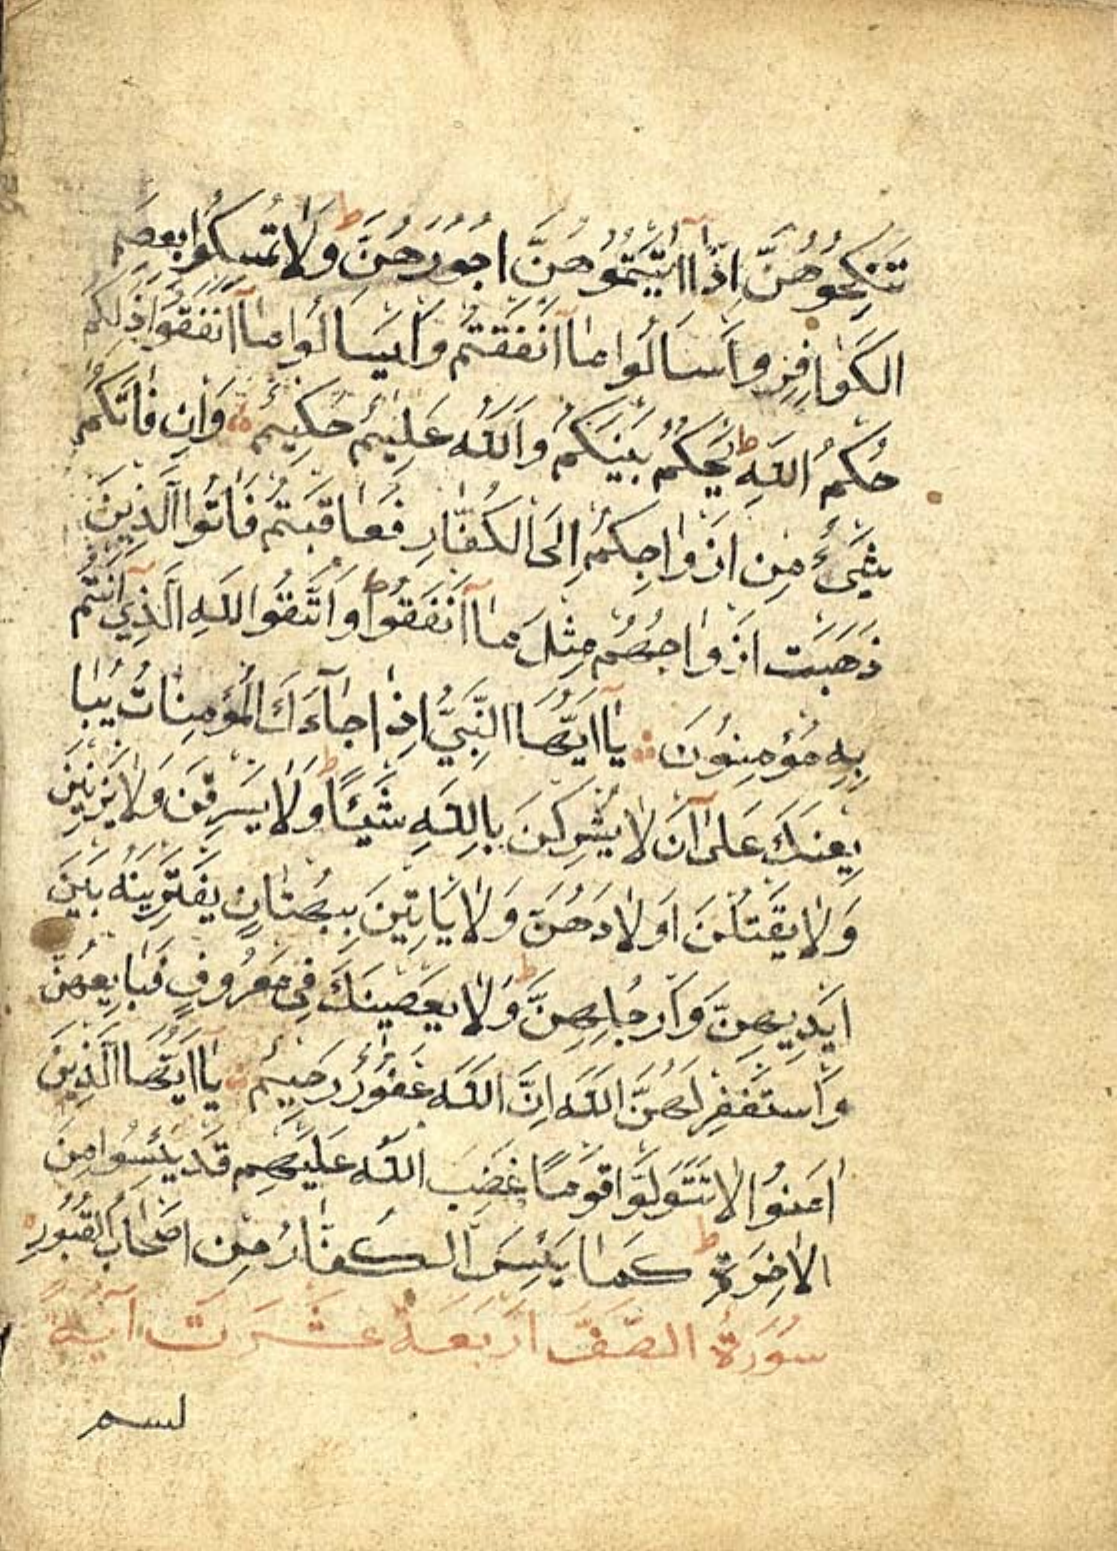 تَنْكِحُوهُنَّ اِذَآ اٰتَيْتُمُوهُنَّ اُجُورَهُنَّ ط وَلَا تُمْسِكُوا بِعِصَمِ
الْكَوَافِرِ وَاسْاَلُوا مَآ اَنْفَقْتُمْ وَلْيَسْاَلُوا مَآ اَنْفَقُوا ذٰلِكُمْ
حُكْمُ اللّٰهِ ط يَحْكُمُ بَيْنَكُمْ وَاللّٰهُ عَلِيمٌ حَكِيمٌ ۞ وَاِنْ فَاتَكُمْ
شَيْءٌ مِنْ اَزْوَاجِكُمْ اِلَى الْكُفَّارِ فَعَاقَبْتُمْ فَاٰتُوا الَّذِينَ
ذَهَبَتْ اَزْوَاجُهُمْ مِثْلَ مَآ اَنْفَقُوا ط وَاتَّقُوا اللّٰهَ الَّذِي اَنْتُمْ
بِهِ مُؤْمِنُونَ ۞ يَآ اَيُّهَا النَّبِيُّ اِذَا جَآءَكَ الْمُؤْمِنَاتُ يُبَا
يِعْنَكَ عَلٰٓى اَنْ لَا يُشْرِكْنَ بِاللّٰهِ شَيْئًا ط وَلَا يَسْرِقْنَ وَلَا يَزْنِينَ
وَلَا يَقْتُلْنَ اَوْلَادَهُنَّ وَلَا يَاْتِينَ بِبُهْتَانٍ يَفْتَرِينَهُ بَيْنَ
اَيْدِيهِنَّ وَاَرْجُلِهِنَّ ط وَلَا يَعْصِينَكَ فِي مَعْرُوفٍ فَبَايِعْهُنَّ
وَاسْتَغْفِرْ لَهُنَّ اللّٰهَ اِنَّ اللّٰهَ غَفُورٌ رَحِيمٌ ۞ يَآ اَيُّهَا الَّذِينَ
اٰمَنُوا لَا تَتَوَلَّوْا قَوْمًا غَضِبَ اللّٰهُ عَلَيْهِمْ قَدْ يَئِسُوا مِنَ
الْاٰخِرَةِ ط كَمَا يَئِسَ الْكُفَّارُ مِنْ اَصْحَابِ الْقُبُورِ ۞
سُورَةُ الصَّفِّ اَرْبَعَةُ عَشَرَتَ اٰيَةً
بسم